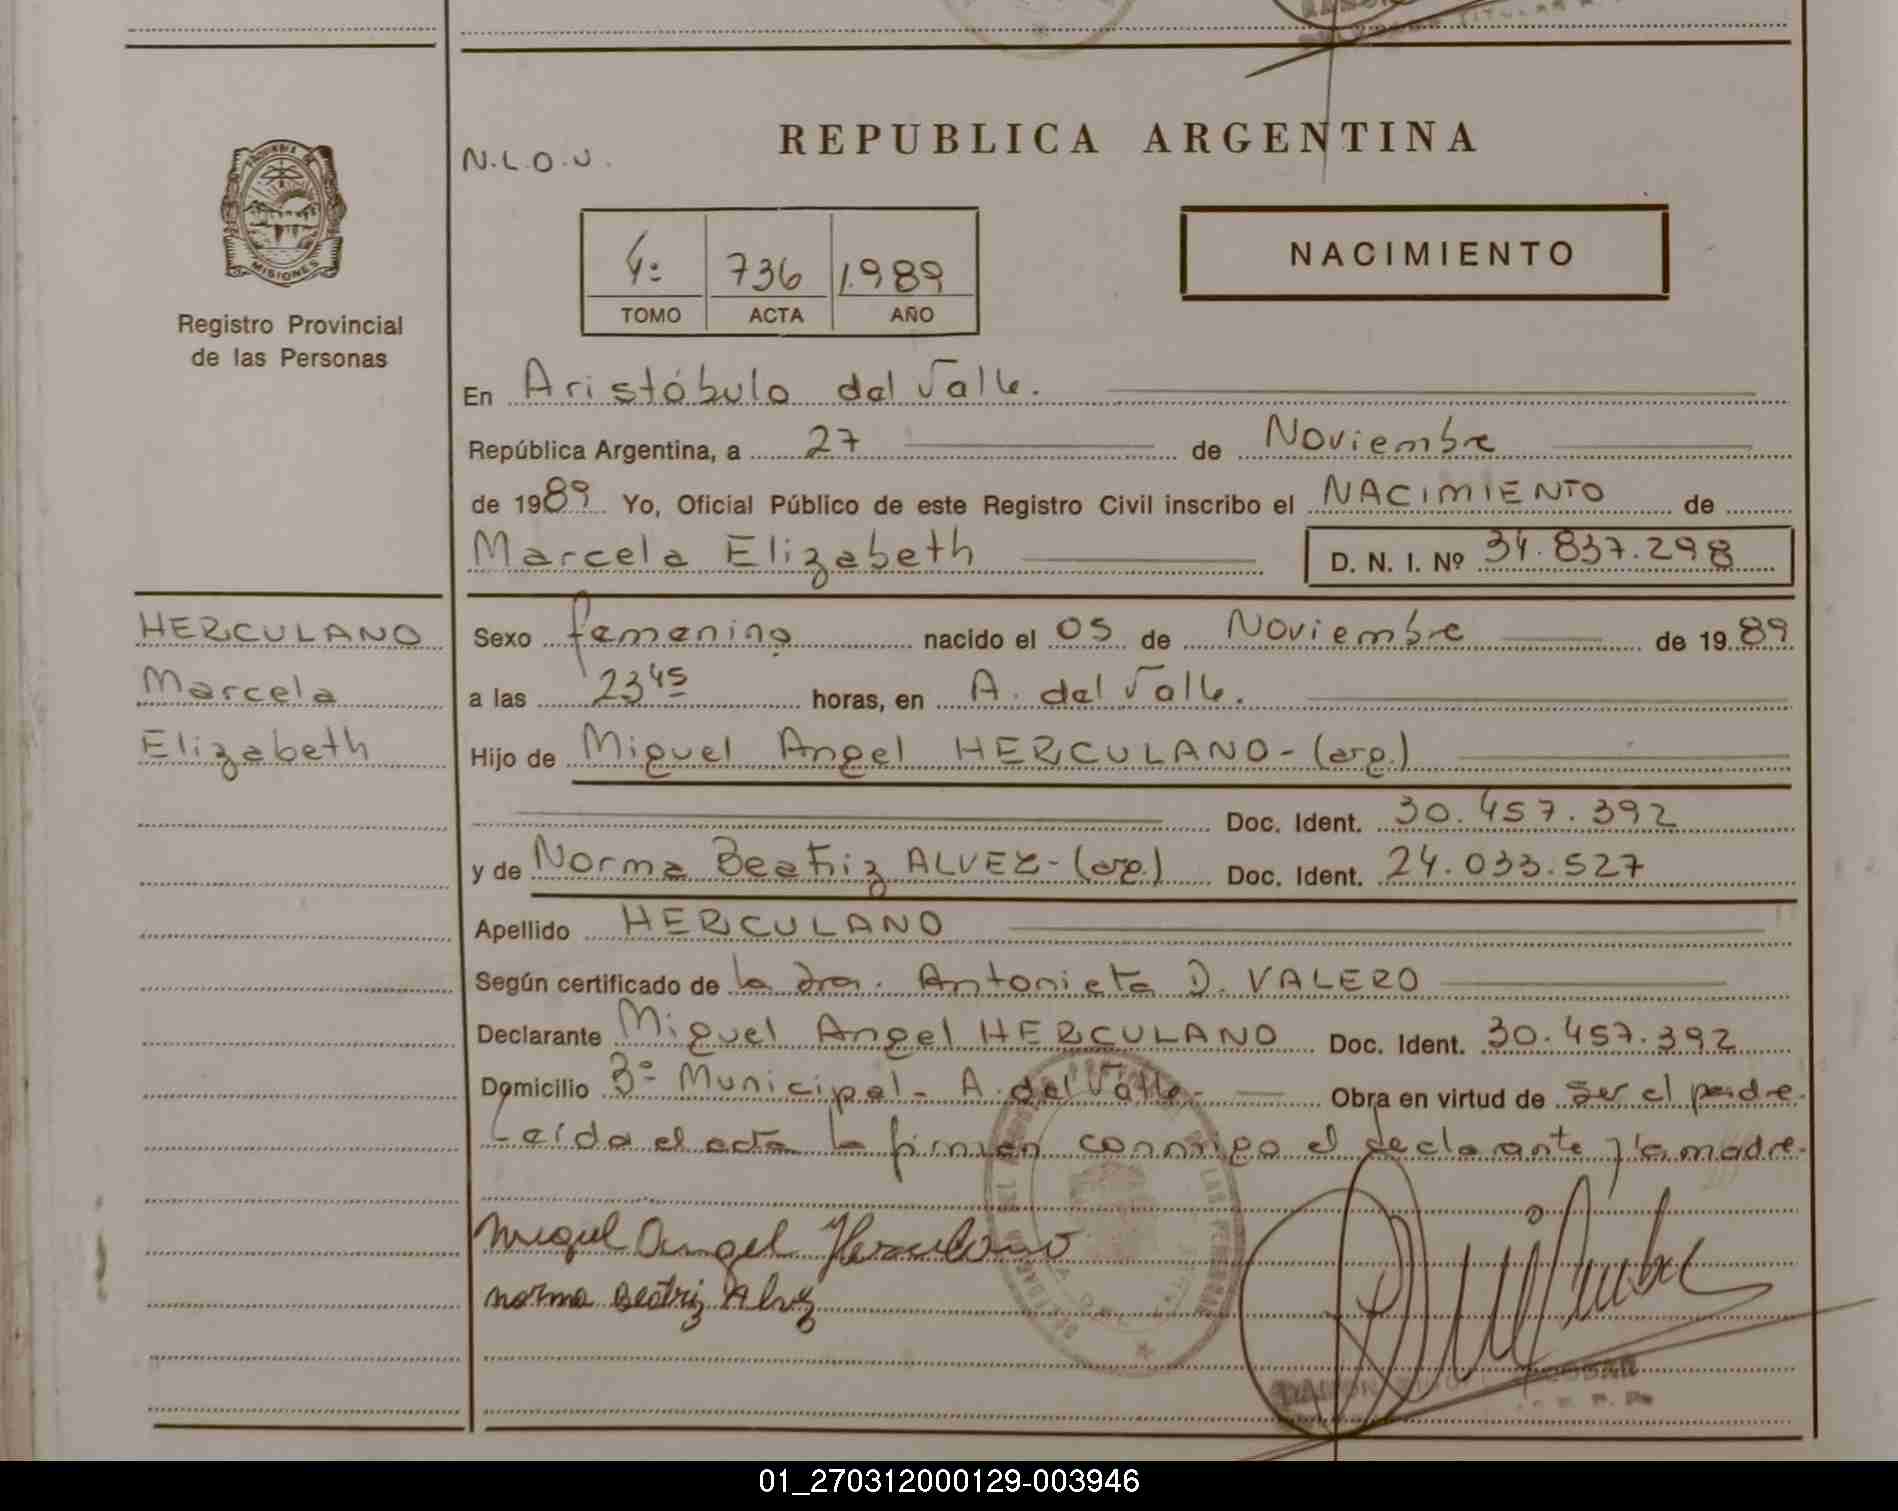 REPUBLICA ARGENTINA
N.L.O.U.
PROVINCIA DE
MISIONES
Registro Provincial
de las Personas
4º 736 1.989
TOMO ACTA AÑO
NACIMIENTO
En Aristóbulo del Valle.
República Argentina, a 27 de Noviembre
de 1989 Yo, Oficial Público de este Registro Civil inscribo el NACIMIENTO de
Marcela Elizabeth D. N. I. Nº 34.837.298
HERCULANO
Marcela
Elizabeth
Sexo femenino nacido el 05 de Noviembre de 1989
a las 23 45 horas, en A. del Valle.
Hijo de Miguel Angel HERCULANO - (arg.)
Doc. Ident. 30.457.392
y de Norma Beatriz ALVEZ - (arg.) Doc. Ident. 24.033.527
Apellido HERCULANO
Según certificado de la dra. Antonieta D. VALERO
Declarante Miguel Angel HERCULANO Doc. Ident. 30.457.392
Domicilio Bº Municipal - A. del Valle - Obra en virtud de ser el padre.
Leída el acta la firman conmigo el declarante y la madre.
Miguel Angel Herculano
norma Beatriz Alvez
01_270312000129-003946